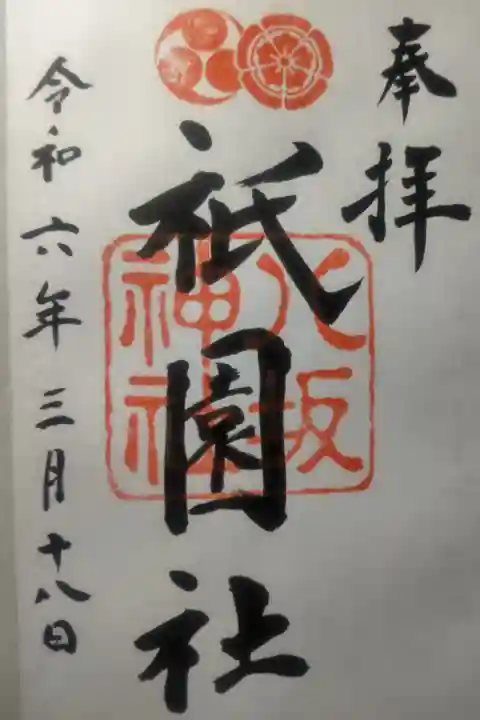 奉拝
八坂
神社
祇園社
令和六年三月十八日